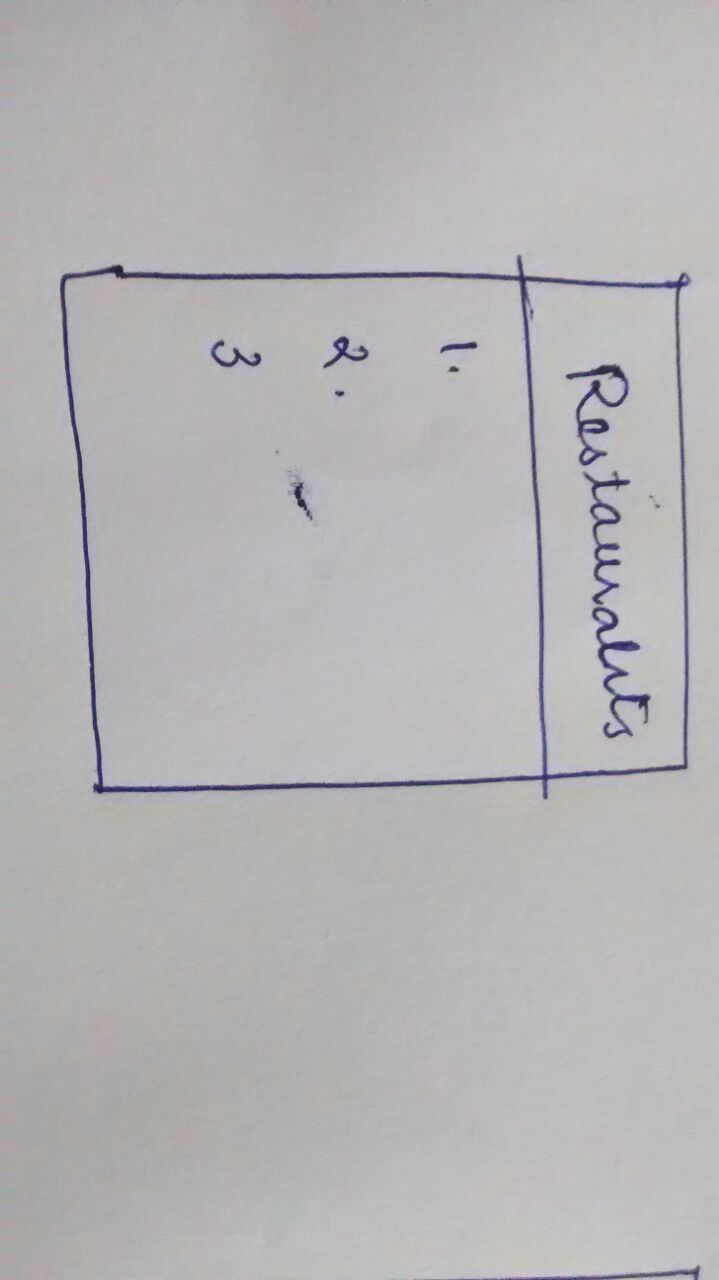 Restaurants
1.
2.
3